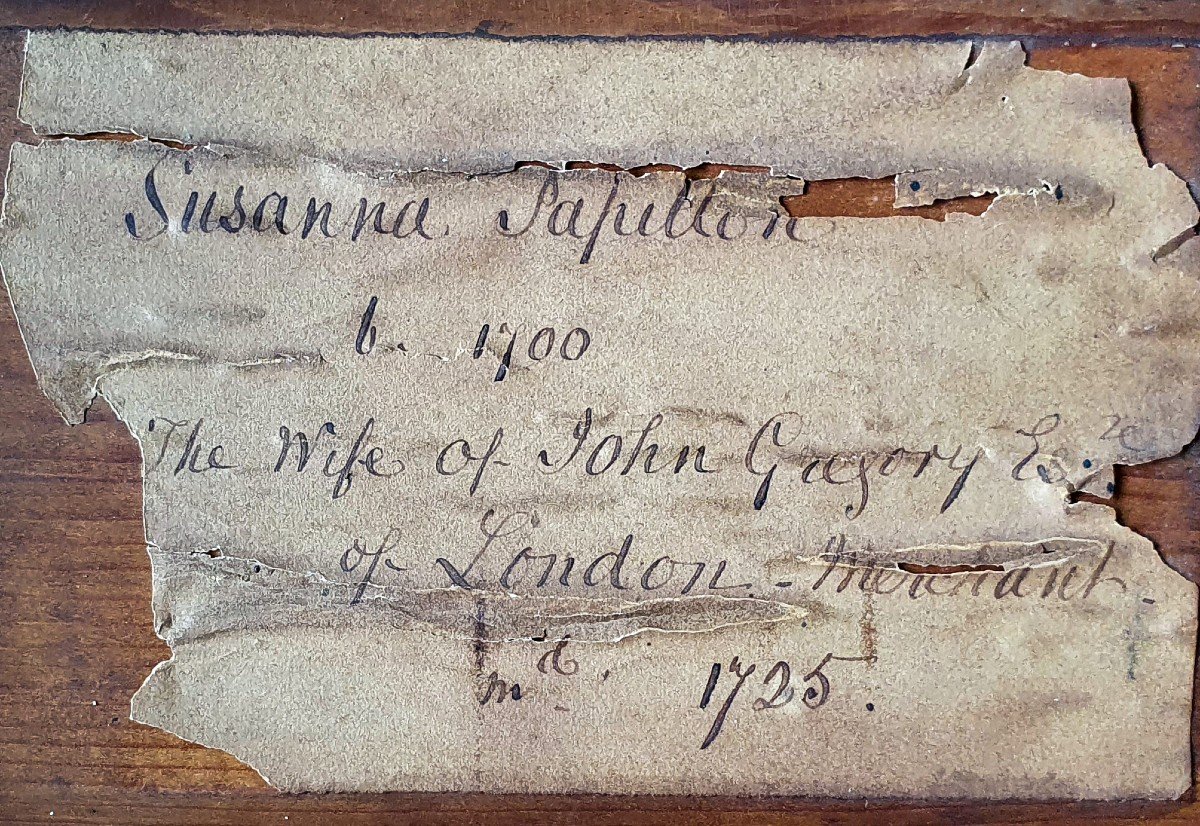 Susanna Papillon
b. 1700
The Wife of John Gregory Esqre
of London - Merchant.
md. 1725.